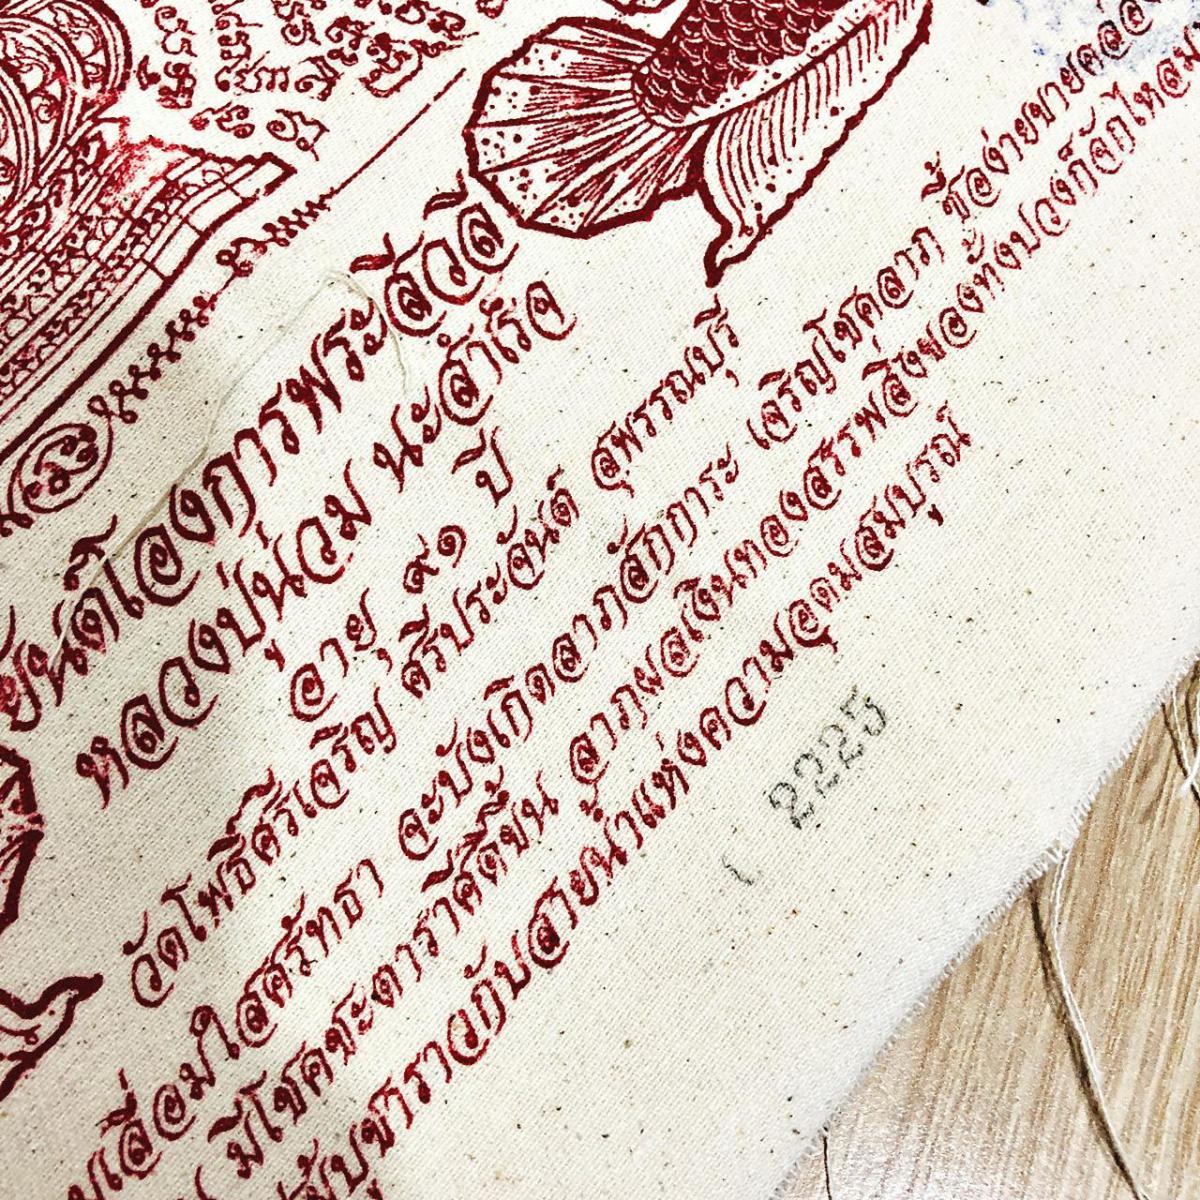 ยันต์โองการพระสีวลี
หลวงปู่นวม นะสำเร็จ
อายุ ๙๑ ปี
วัดโพธิ์ศรีเจริญ ศรีประจันต์ สุพรรณบุรี
เลื่อมใสศรัทธา จะบังเกิดลาภสักการะ เจริญโชคลาภ ซื้อง่ายขายคล่อง
มีโชคชะตาราศีดีขึ้น ลาภผลเงินทองสรรพสิ่งของทั้งปวงก็จักไหลมา
บูชาราวกับสายน้ำแห่งความอุดมสมบูรณ์
2225